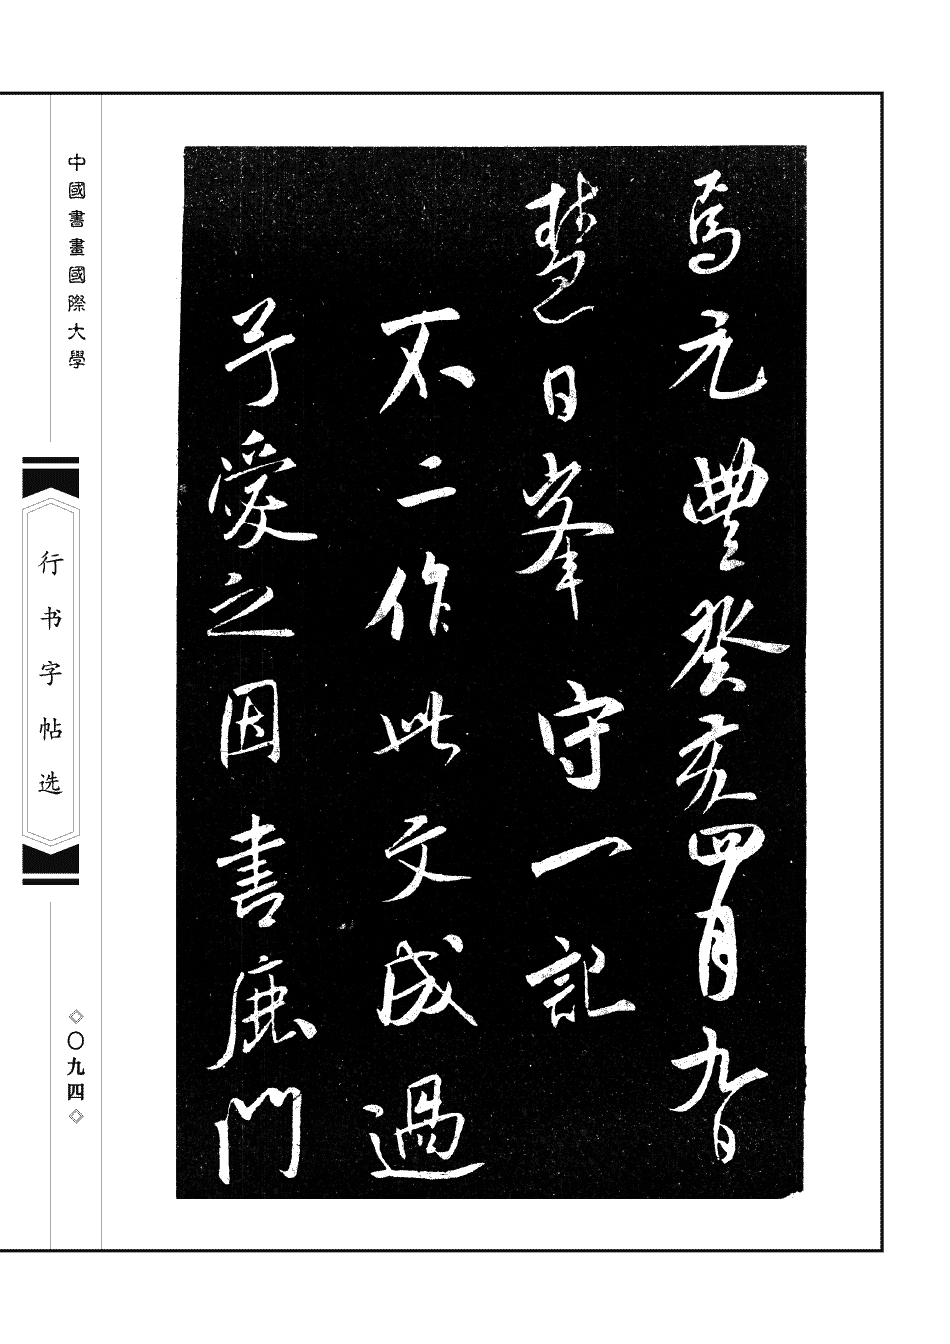 焉元豐癸亥四月九日
慧日峯守一記
不二作此文成過
予愛之因書鹿門
中國書畫國際大學
行书字帖选
〇九四